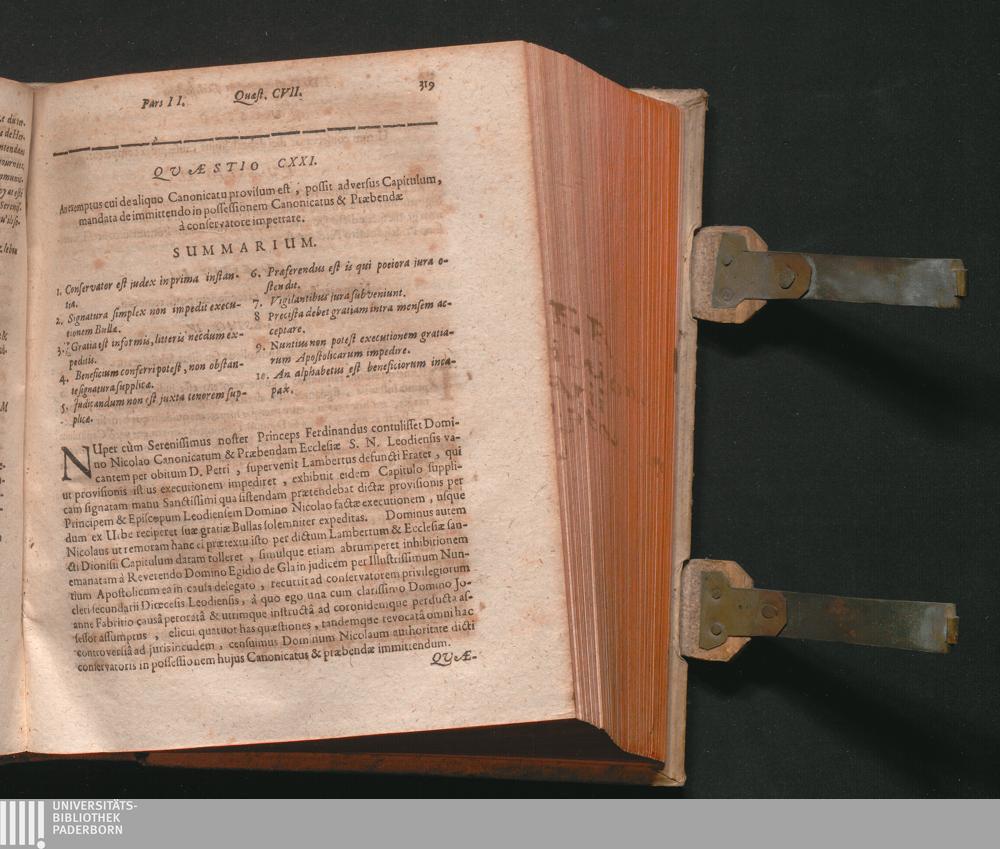 Pars II. Quæst. CVII. 319
QVÆSTIO CXXI.
An exemptus cui de aliquo Canonicatu provisum est, possit adversus Capitulum,
mandata de immittendo in possessionem Canonicatus & Præbendæ
à conservatore impetrare.
SUMMARIUM.
1. Conservator est judex in prima instan-
tia.
2. Signatura simplex non impedit execu-
tionem Bullæ.
3. Gratia est informis, litteris necdum ex-
peditis.
4. Beneficium conferri potest, non obstan-
te signatura supplicæ.
5. Judicandum non est juxta tenorem sup-
plicæ.
6. Præferendus est is qui potiora jura o-
stendit.
7. Vigilantibus jura subveniunt.
8 Precista debet gratiam intra mensem ac-
ceptare.
9. Nuntius non potest executionem gratia-
rum Apostolicarum impedire.
10. An alphabetus est beneficiorum inca-
pax.
NUper cùm Serenissimus noster Princeps Ferdinandus contulisset Domi-
no Nicolao Canonicatum & Præbendam Ecclesiæ S. N. Leodiensis va-
cantem per obitum D. Petri, supervenit Lambertus defuncti Frater, qui
ut provisionis istius executionem impediret, exhibuit eidem Capitulo suppli-
cam signatam manu Sanctissimi qua sistendam prætendebat dictæ provisionis per
Principem & Episcopum Leodiensem Domino Nicolao factæ executionem, usque
dum ex Urbe reciperet suæ gratiæ Bullas solemniter expeditas. Dominus autem
Nicolaus ut remoram hanc ei prætextu isto per dictum Lambertum & Ecclesiæ san-
cti Dionisii Capitulum datam tolleret, simulque etiam abrumperet inhibitionem
emanatam à Reverendo Domino Egidio de Gla in judicem per Illustrissimum Nun-
tium Apostolicum ea in causa delegato, recurrit ad conservatorem privilegiorum
cleri secundarii Diœcesis Leodiensis, à quo ego una cum clarissimo Domino Jo-
anne Fabritio causâ peroratâ & utrimque instructâ ad coronidemque perducta as-
sessor assumptus, elicui quatuor has quæstiones, tandemque revocatâ omni hac
controversiâ ad juris incudem, censuimus Dominum Nicolaum authoritate dicti
conservatoris in possessionem hujus Canonicatus & præbendæ immittendum.
QVÆ-
UNIVERSITÄTS-
BIBLIOTHEK
PADERBORN